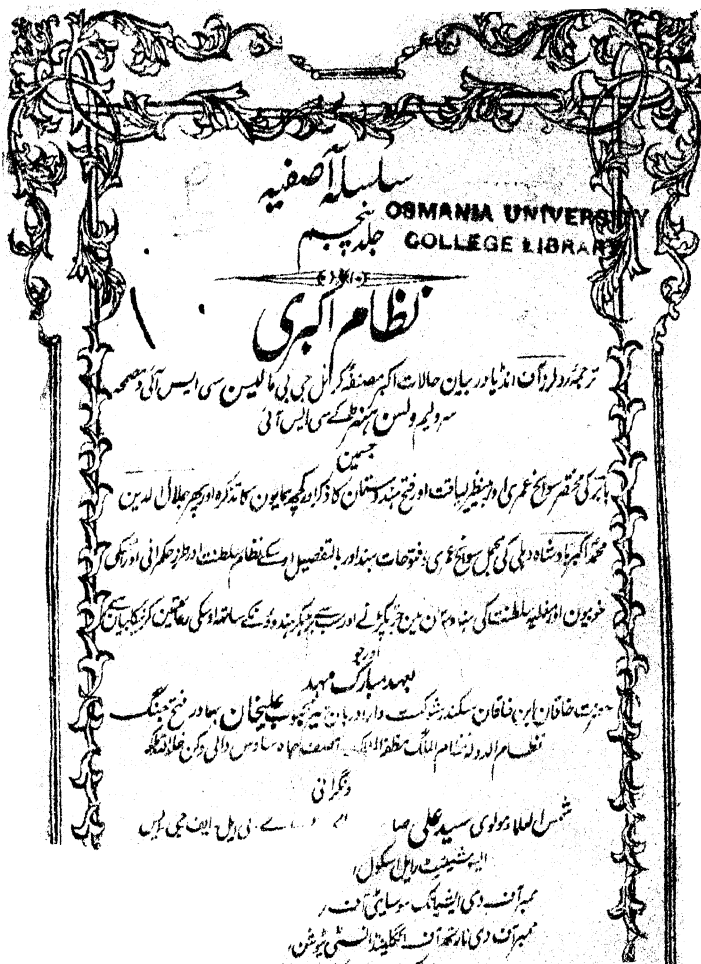 سلسلہ آصفیہ
OSMANIA UNIVERSITY
جلد پنجم
COLLEGE LIBRARY
نظام اکبری
ترجمہ رولرز آف انڈیا در بیان حالات اکبر مصنفہ کرنل جی بی مالیسن سی ایس آئی و مصححہ
سر ولیم ولسن ہنٹر کے سی ایس آئی
جسمین
بابر کی مختصر سوانح عمری اور بینظیر لیاقت اور فتح ہندوستان کا ذکر اور کچھ ہمایون کا تذکرہ اور پھر جلال الدین
محمد اکبر بادشاہ دہلی کی مجمل سوانح عمری فتوحات ہند اور بالتفصیل اوسکے نظام سلطنت اور طرز حکمرانی اور اسکی
خوبیون اور مغلیہ سلطنت کی بنا ہندوستان مین جڑ پکڑنے اور سب سے بڑھکر ہندوؤنکے ساتھ اوسکی رعایتین کرنیکا بیان ہے
اور جو
بعہد مبارک مہد
حضرت خاقان ابن خاقان سکندر شوکت دارا دربان میر محبوب علیخان بہادر فتح جنگ
نظام الدولہ نظام الملک مظفر الممالک آصف جاہ سادس والی دکن خلد اللہ ملکہ
و نگرانی
شمس العلماء مولوی سید علی صا
بی ایل۔ ایف جی ایس
ایسوشیئیٹ رایل اسکول
ممبر آف دی ایشیاٹک سوسایٹی آف
ممبر آف دی نارتھ آف انگلینڈ انسٹی ٹیوشن